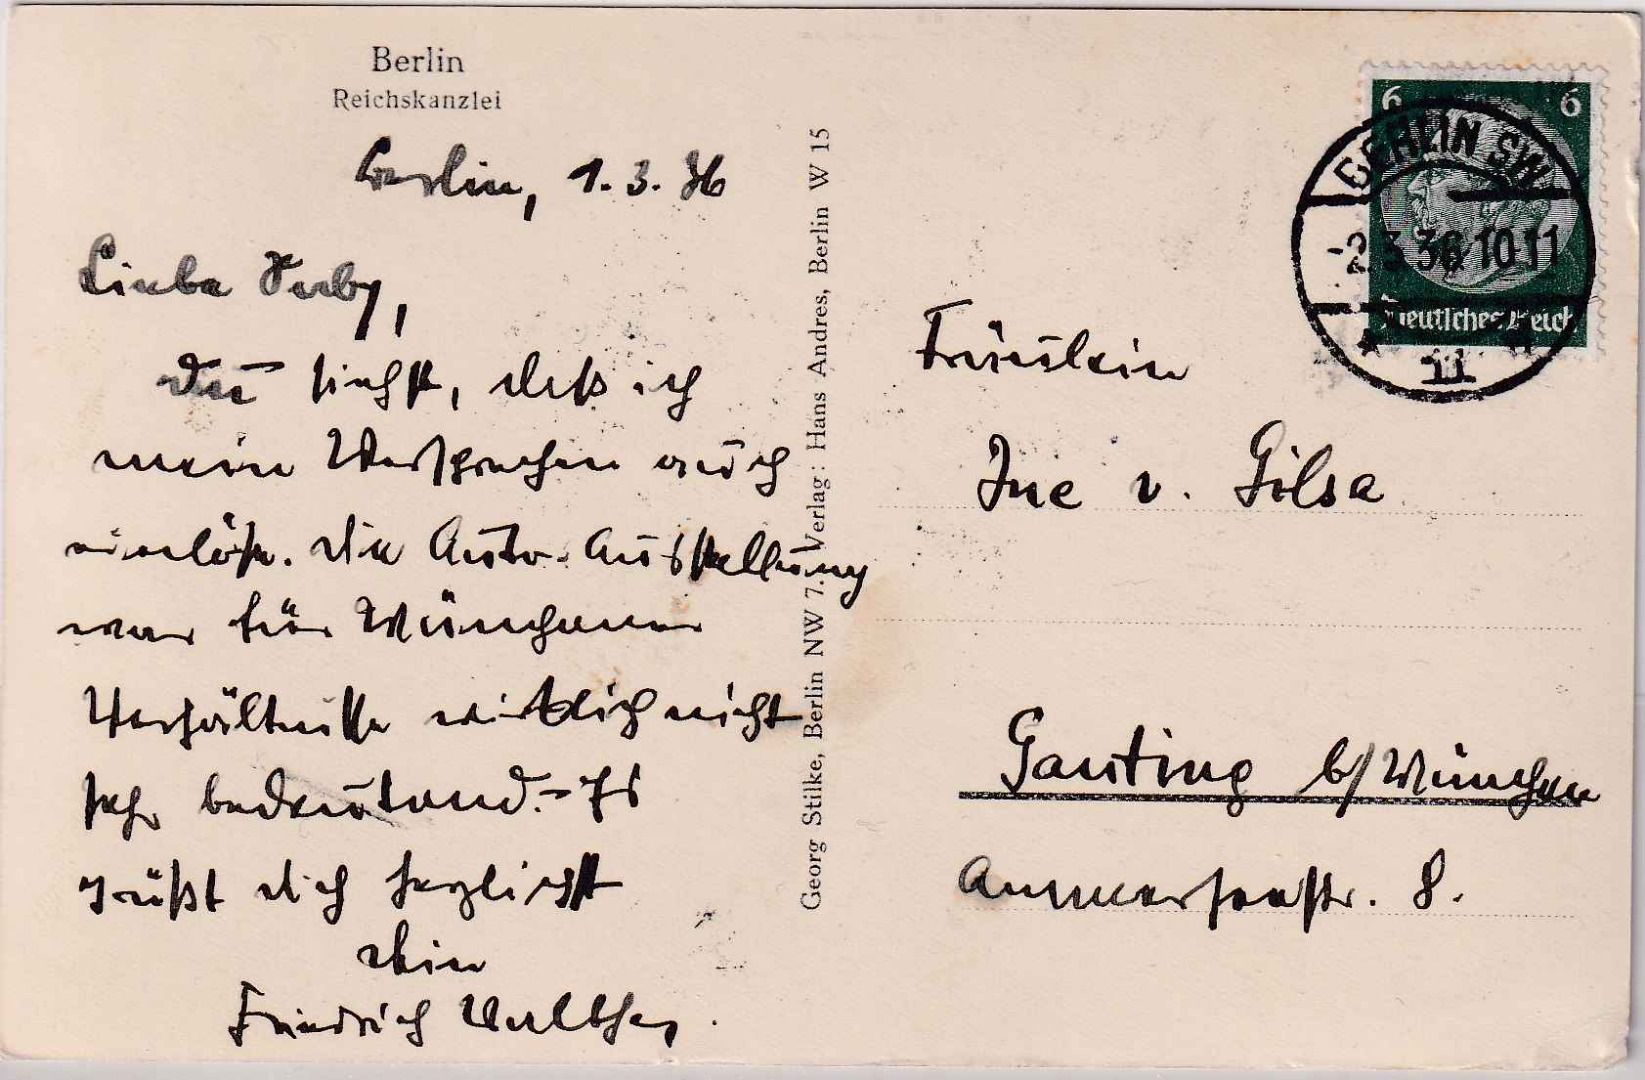 Berlin
Reichskanzlei
Berlin, 1.3.36
Liebe
Du siehst, daß ich
mein Versprechen auch
einlöse. Die Auto-Ausstellung
war für Münchener
Verhältnisse wirklich nicht
sehr bedeutend. – Es
grüßt dich herzlichst
dein
Friedrich Walther.
Georg Stilke, Berlin NW 7. Verlag: Hans Andres, Berlin W 15
6 6
Deutsches Reich
BERLIN SW
-2.3.36 10-11
11
Fräulein
Ine v. Gilsa
Gauting b/München
Ammerseestr. 8.